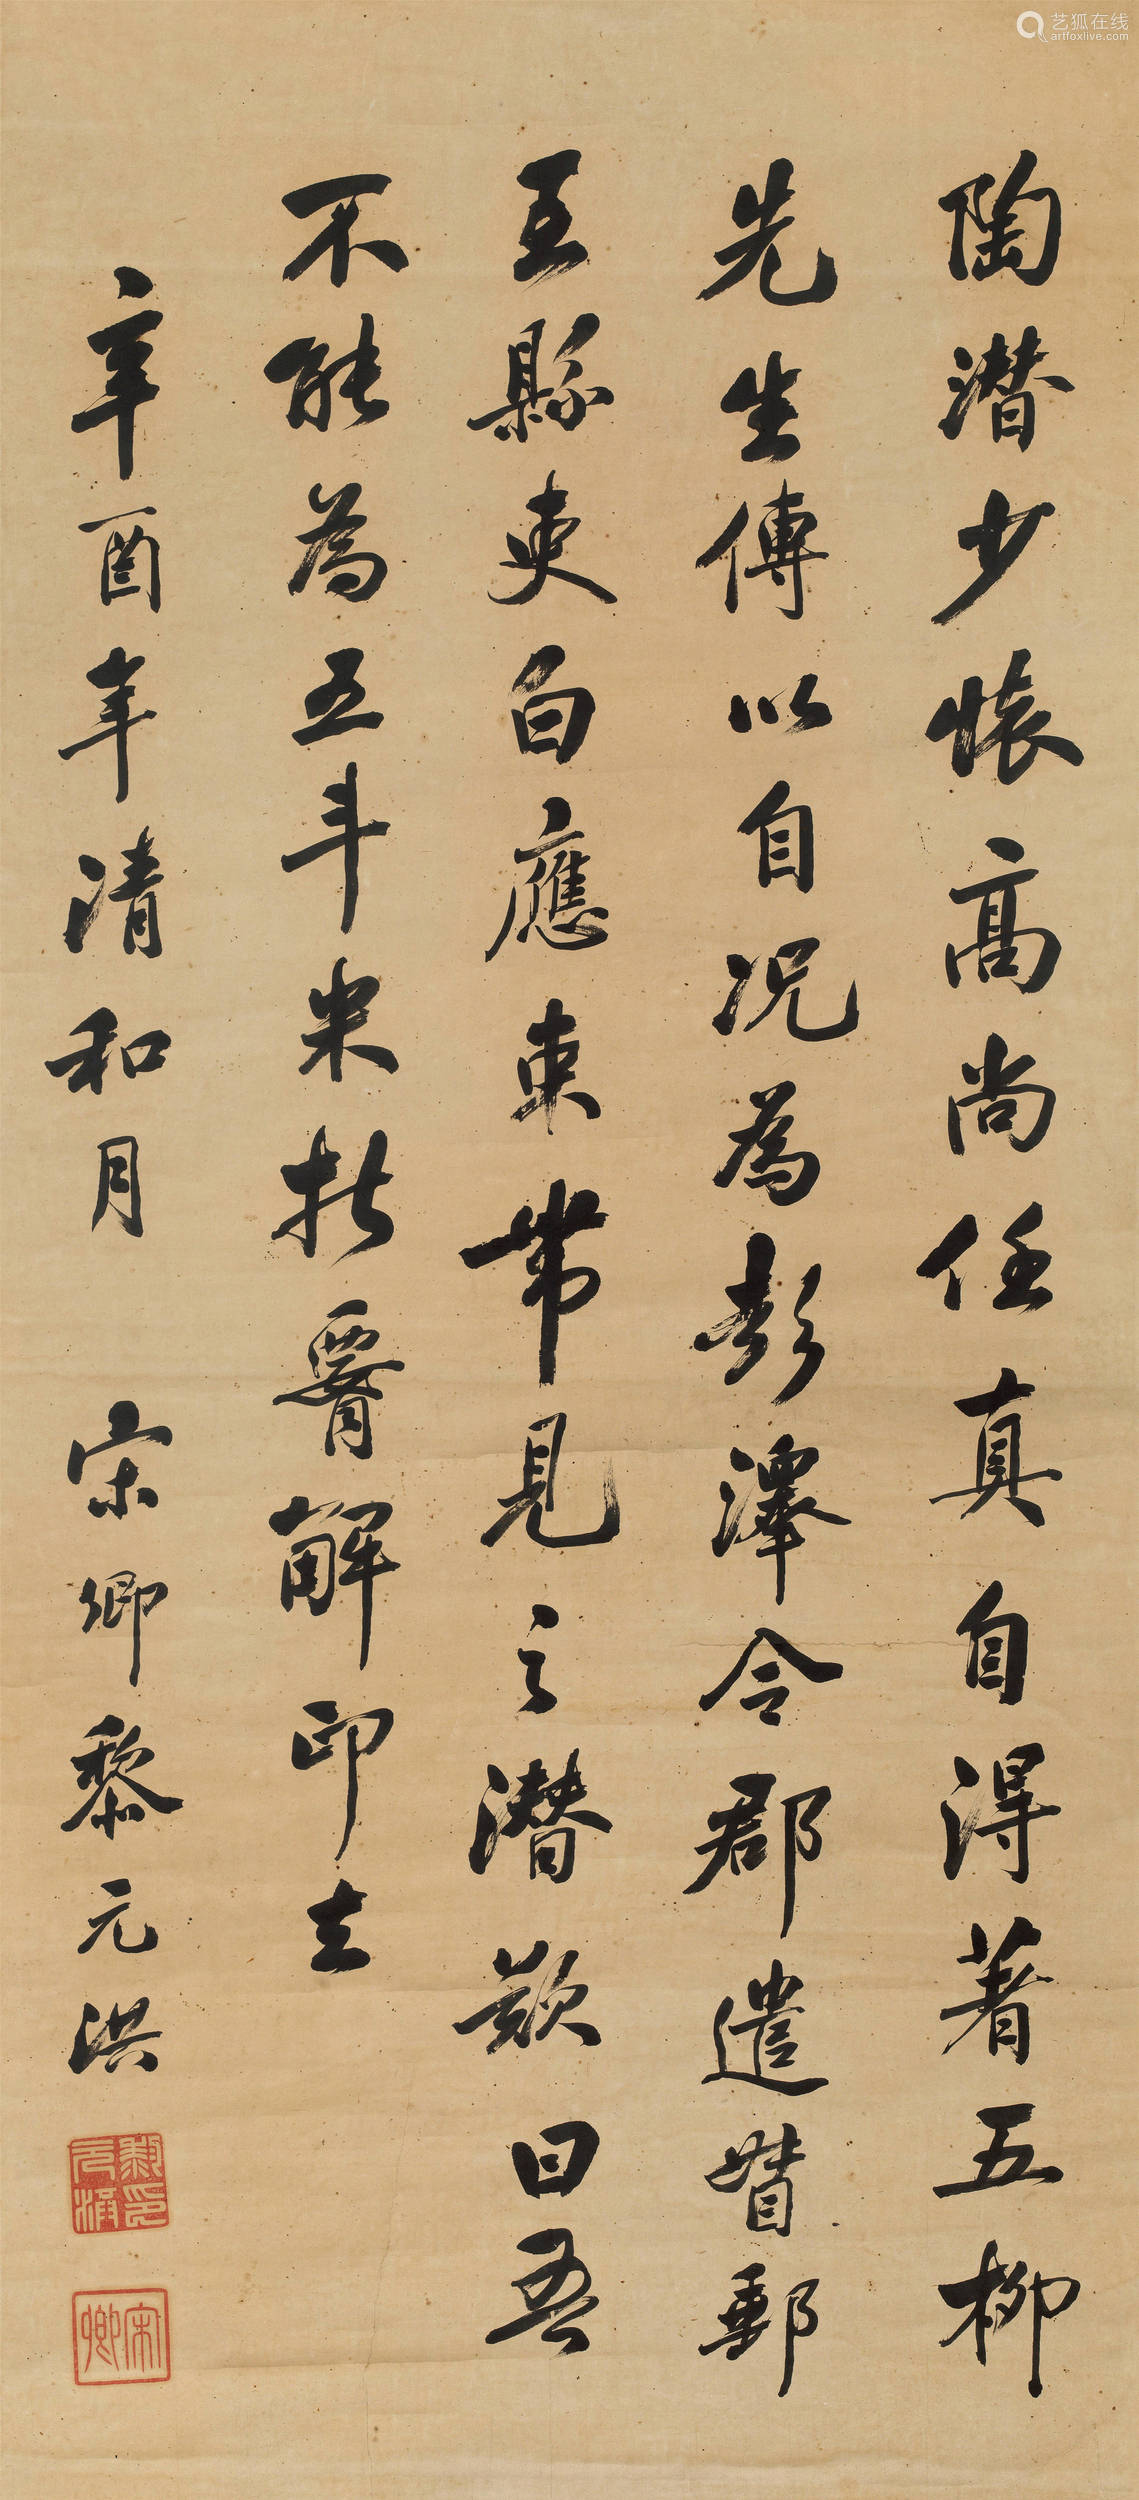 陶潜少懷高尚任真自得著五柳
先生傳以自况為彭澤令郡遣督郵
至縣吏白應束帶見之潜歎曰吾
不能為五斗米折腰解印去
辛酉年清和月 宋卿黎元洪
黎元洪印
宋卿
艺狐在线
artfoxlive.com